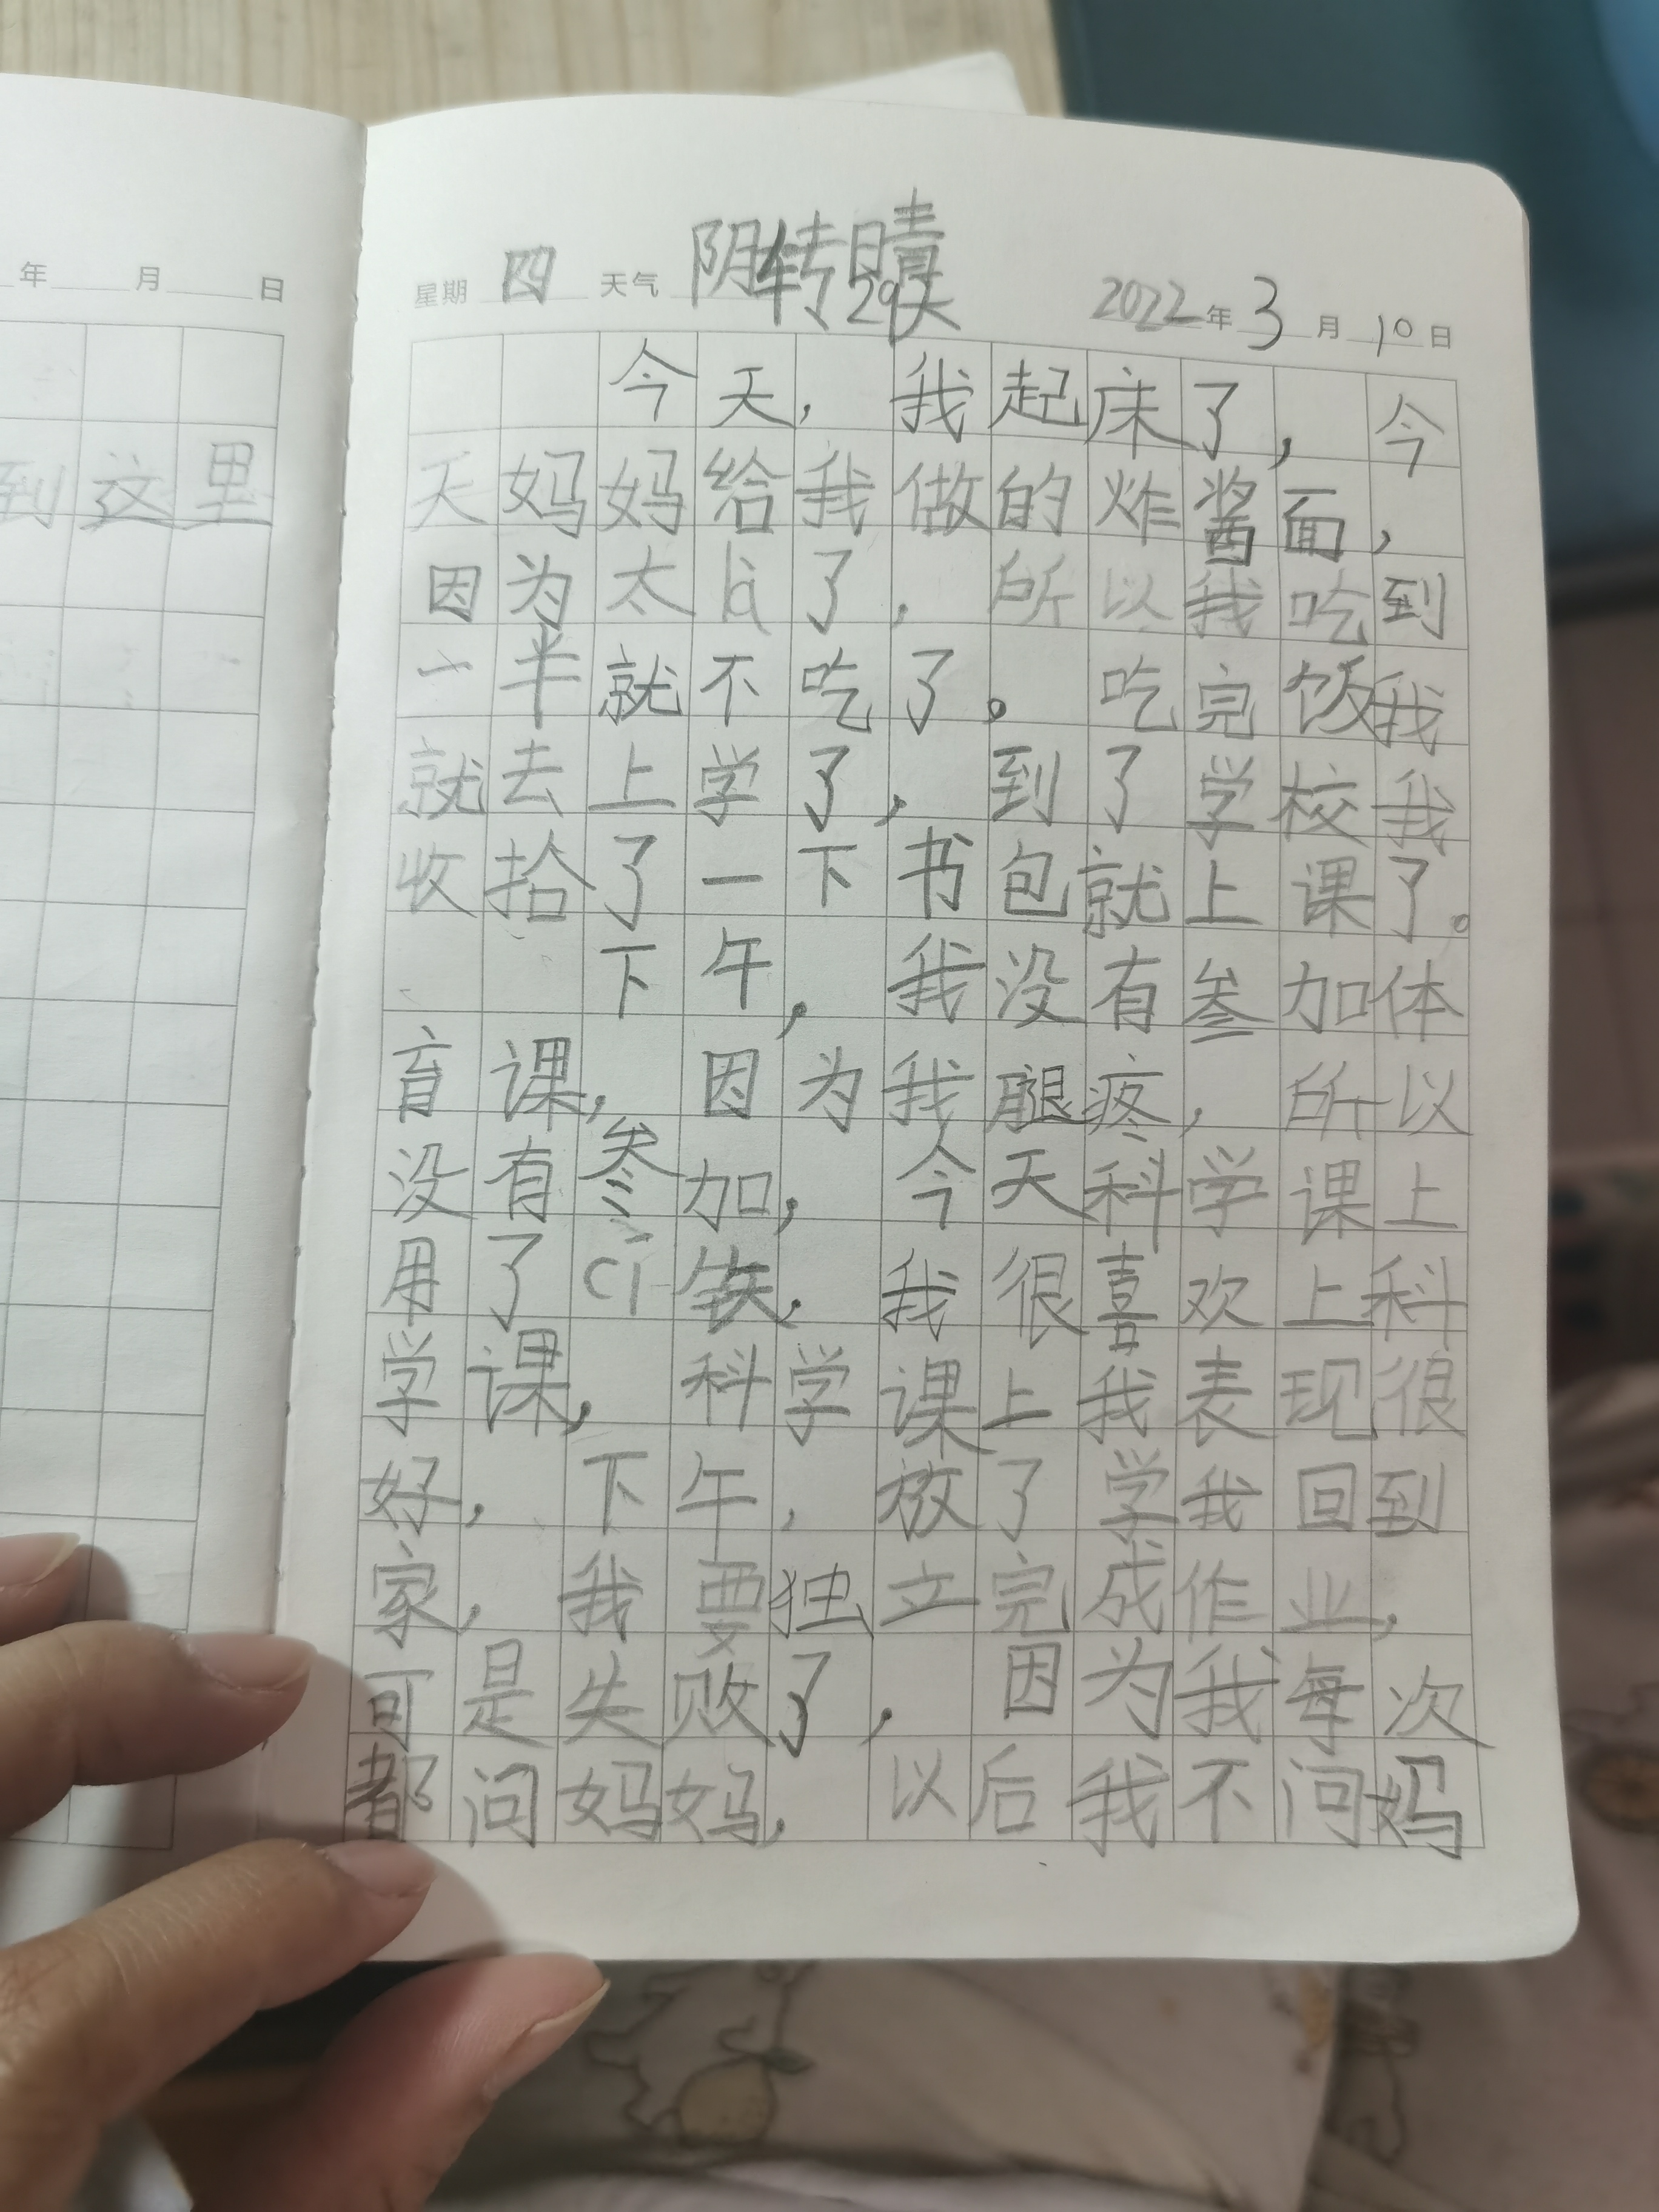 年 月 日
到这里
星期 四 天气 阴转晴 2022年3月10日
29天
今天，我起床了，今
天妈妈给我做的炸酱面，
因为太là了，所以我吃到
一半就不吃了。吃完饭我
就去上学了，到了学校我
收拾了一下书包就上课了。
下午，我没有参加体
育课，因为我腿疼，所以
没有参加，今天科学课上
用了cí铁，我很喜欢上科
学课，科学课上我表现很
好，下午，放了学我回到
家，我要独立完成作业，
可是失败了，因为我每次
都问妈妈，以后我不问妈